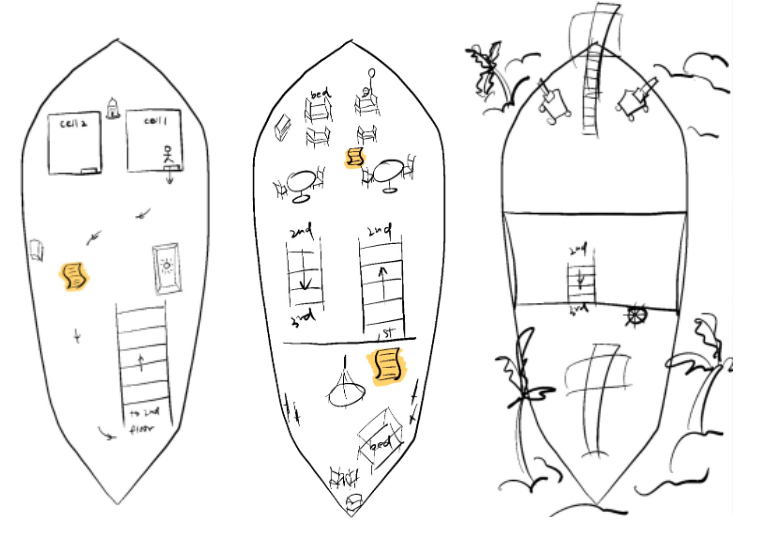 cell 2
cell 1
to 2nd
floor
bed
2nd
2nd
3rd
1st
bed
2nd
3rd